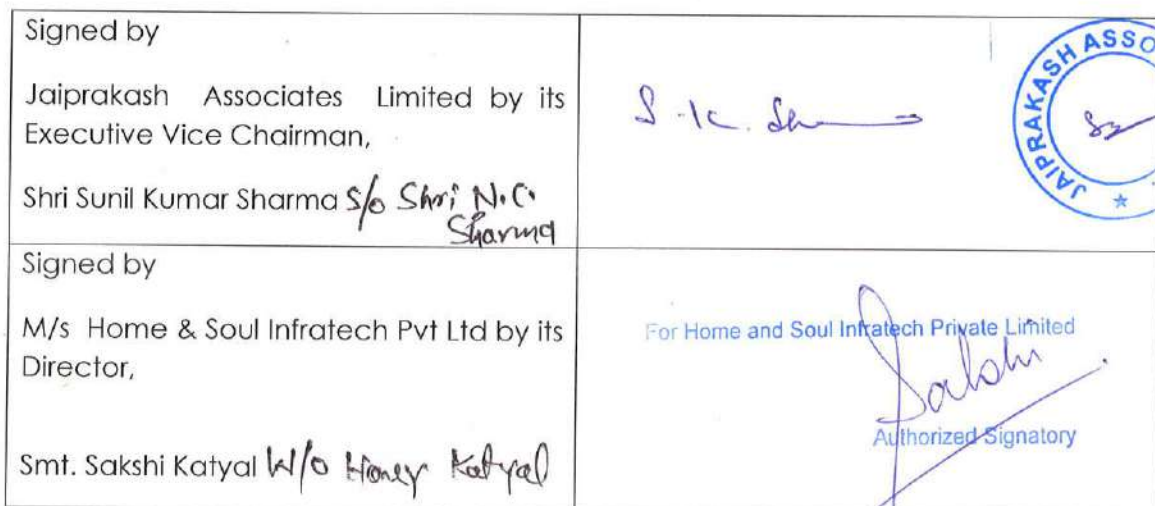 Signed by
Jaiprakash Associates Limited by its
Executive Vice Chairman,
Shri Sunil Kumar Sharma S/o Shri N.C.
Sharma
S.K. Sh
JAIPRAKASH ASSO
Signed by
M/s Home & Soul Infratech Pvt Ltd by its
Director,
Smt. Sakshi Katyal W/o Honey Katyal
For Home and Soul Infratech Private Limited
Sakshi
Authorized Signatory